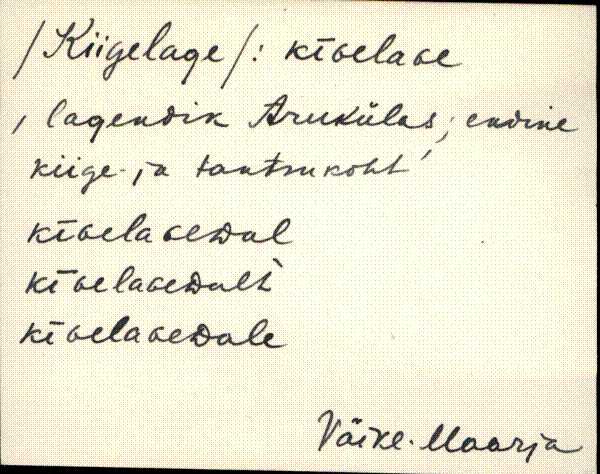 /Kiigelage/: kīɢelaɢe
, lagendik Arukülas; endine
kiige- ja tantsukoht '
kīɢelaɢeᴅal
kīɢelaɢeᴅalt̀
kīɢelaɢeᴅale
Väike-Maarja